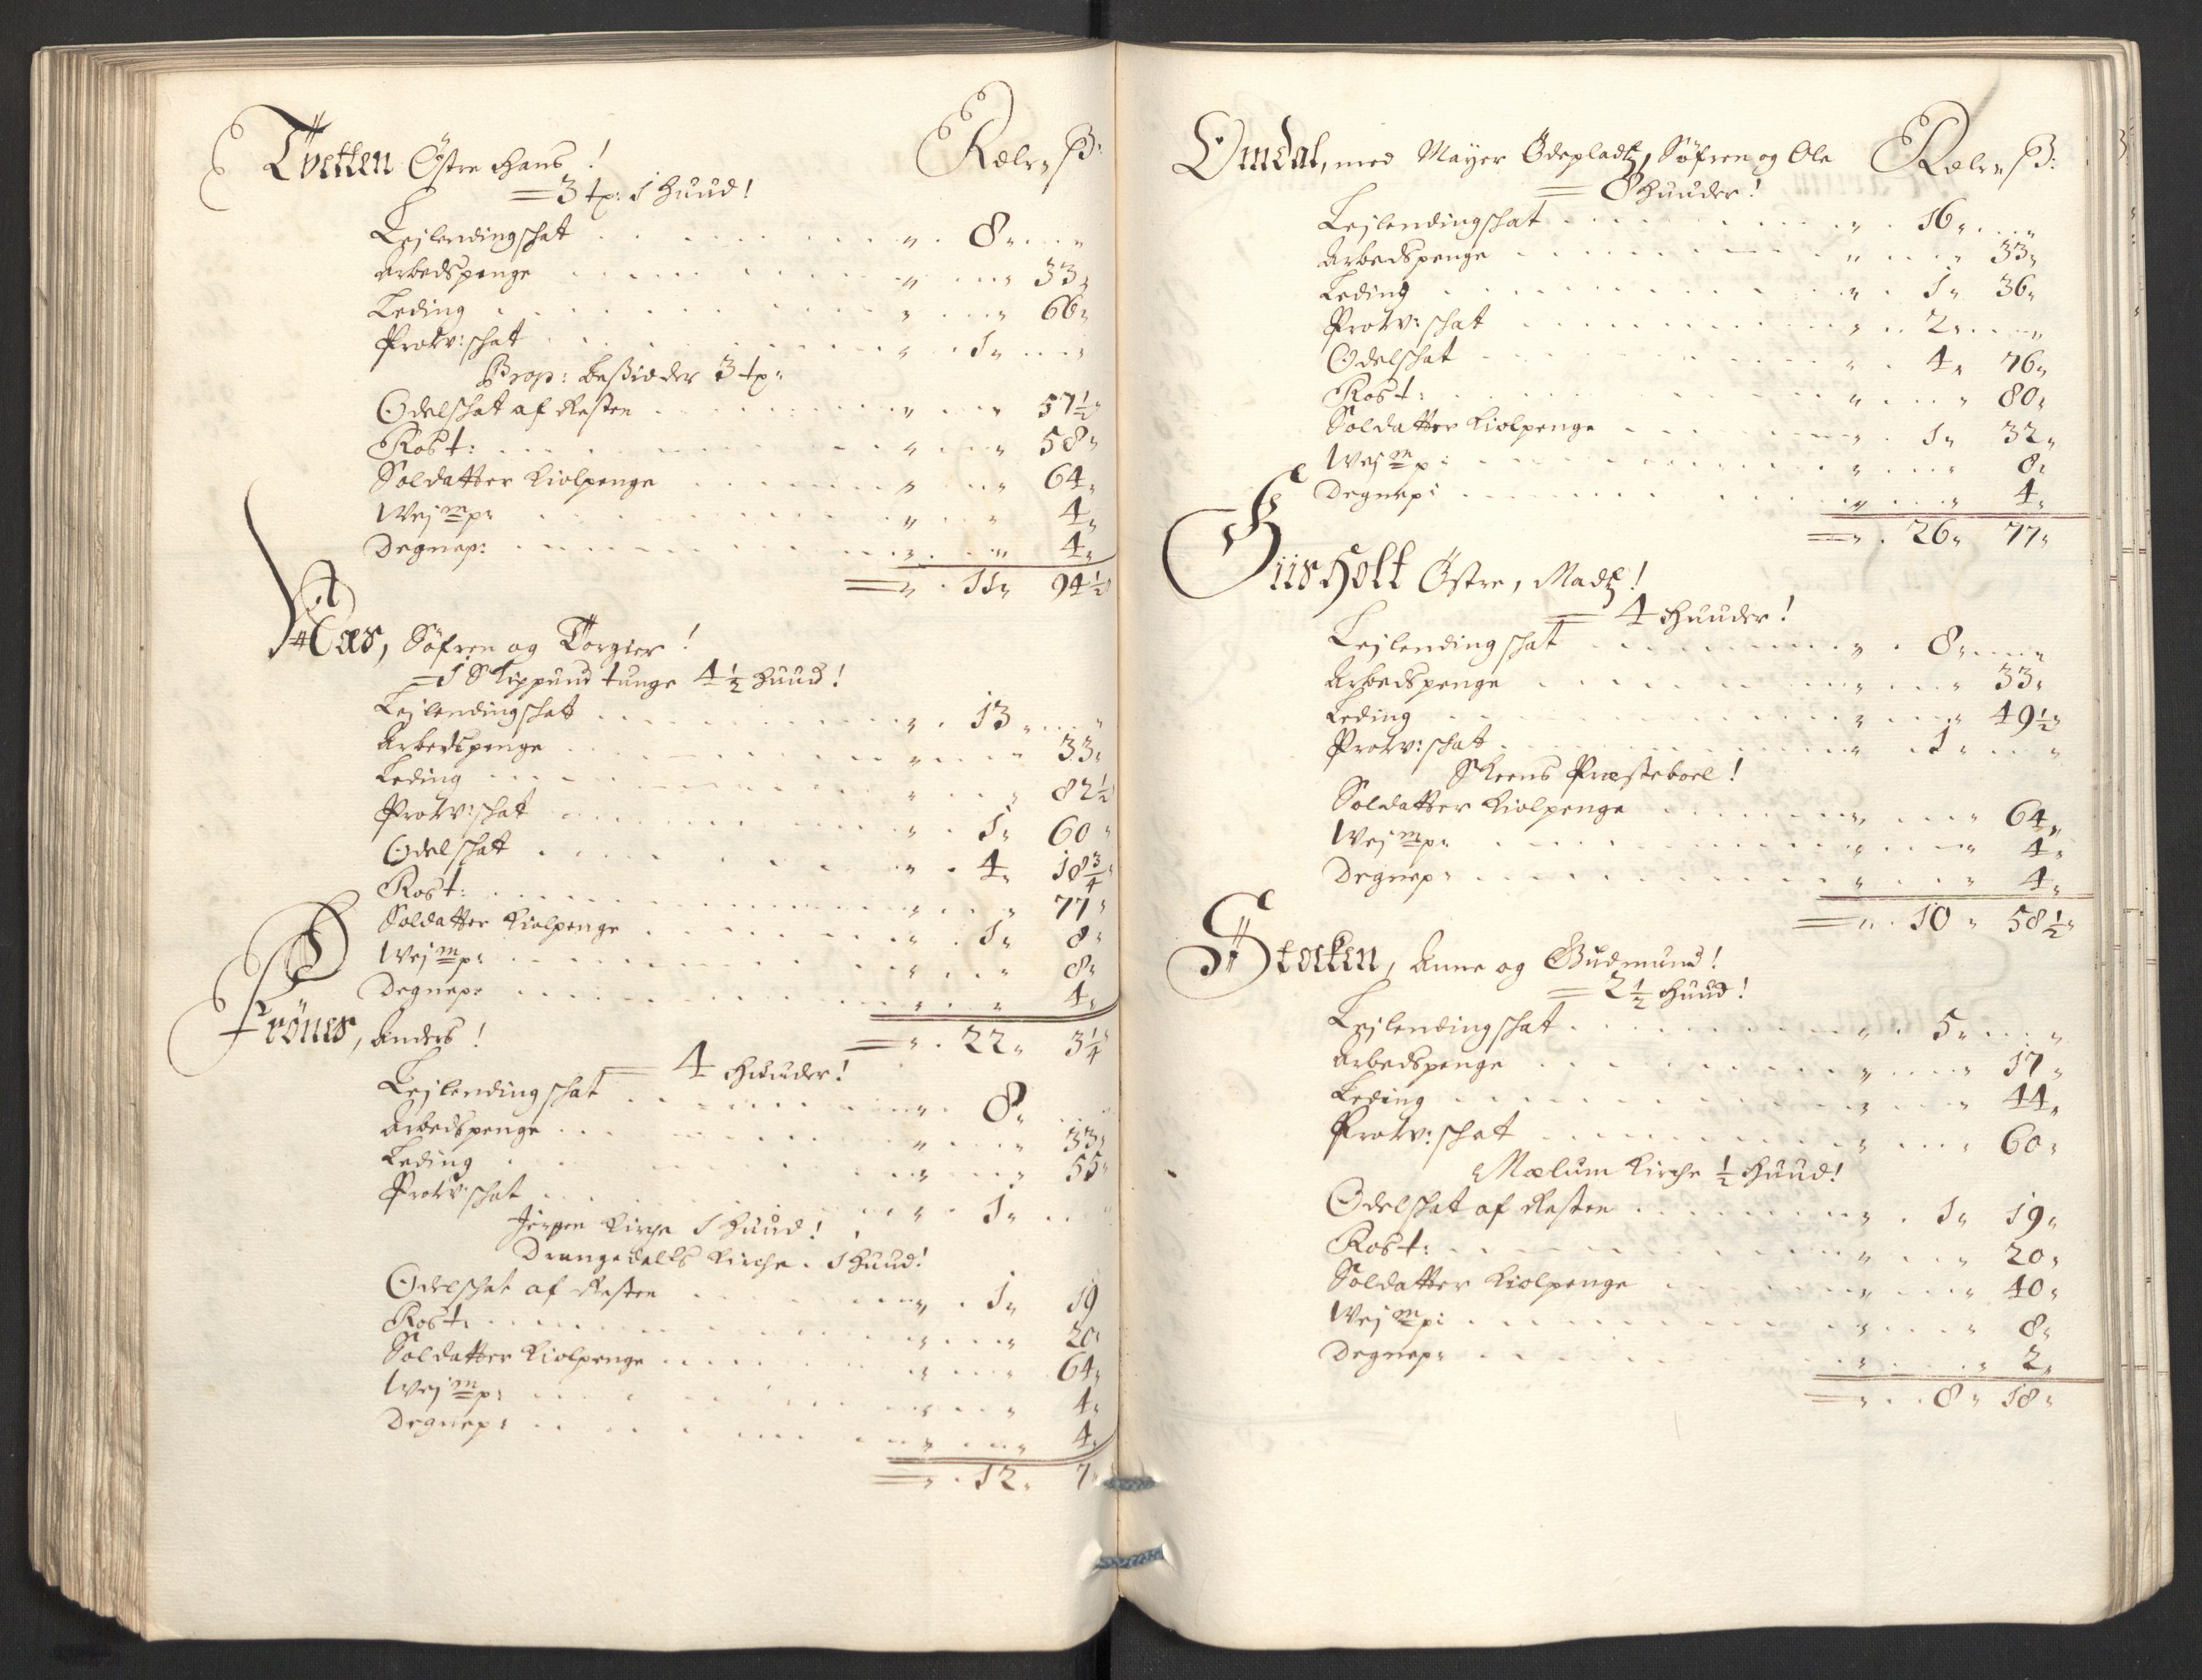 Tvetten Östre Hans ! Rdlr ß:
= 3 tp: 1 Huud!
Lejlendingschat . . . 8 „ „
Arbedspenge . . . „ 33 „
Leding . . . „ 66 „
Prowi:schat . . . 1 „ „
Prop: besidder 3 tp:
Odelschat af Resten . . . „ 57½
Rost: . . . „ 58 „
Soldatter Kiolpenge . . . „ 64 „
Wej m p: . . . „ 4 „
Degnep: . . . „ 4 „
= „ 11 „ 94½
Næs, Söfren og Torgier !
= 1 Skippund tunge 4½ Huud !
Lejlendingschat . . . 13 „ „
Arbedspenge . . . „ 33 „
Leding . . . „ 82½
Prowi:schat . . . 1 „ 60 „
Odelschatt . . . 4 „ 18¾
Rost: . . . „ 77 „
Soldatter Kiolpenge . . . 1 „ 8 „
Wej m p: . . . „ 8 „
Degnep: . . . „ 4 „
= „ 22 „ 3¼
Frönes, Anders !
= 4 Huuder !
Lejlendingschat . . . 8 „
Arbedspenge . . . „ 33 „
Leding . . . „ 55 „
Prowi:schat . . . 1 „ „
Jerpen Kirche 1 Huud !
Drangedalls Kirche . 1 Huud !
Odelschat af Resten . . . 1 „ 19
Rost: . . . „ 20 „
Soldatter Kiolpenge . . . „ 64 „
Wej m p: . . . „ 4 „
Degnep: . . . „ 4 „
= „ 12 „ 7 „
Omdal, med Mayer Ödepladtz, Söfren og Ole Rdlr ß:
= 8 Huuder !
Lejlendingschat . . . 16 „ „
Arbedspenge . . . „ 33 „
Leding . . . 1 „ 36 „
Prowi:schat . . . 2 „ „
Odelschat . . . 4 „ 76 „
Rost: . . . „ 80 „
Soldatter Kiolpenge . . . 1 „ 32 „
Wej m p: . . . „ 8 „
Degnep: . . . „ 4 „
= „ 26 „ 77 „
Giisholt Östre, Madtz !
= 4 Huuder !
Lejlendingschat . . . 8 „ „
Arbedspenge . . . „ 33 „
Leding . . . „ 49½ „
Prowi:schat . . . 1 „ „
Skeens Præsteboel !
Soldatter Kiolpenge . . . „ 64 „
Wej m p: . . . „ 4 „
Degnep: . . . „ 4 „
= „ 10 „ 58½ „
Stocken, Anne og Gudmund !
= 2½ Huud !
Lejlendingschat . . . 5 „ „
Arbedspenge . . . „ 17 „
Leding . . . „ 44 „
Prowi:schat . . . „ 60 „
Mælum Kirche ½ Huud !
Odelschat af Resten . . . 1 „ 19 „
Rost: . . . „ 20 „
Soldatter Kiolpenge . . . „ 40 „
Wej m p: . . . „ 8 „
Degnep: . . . „ 2 „
= „ 8 „ 18 „